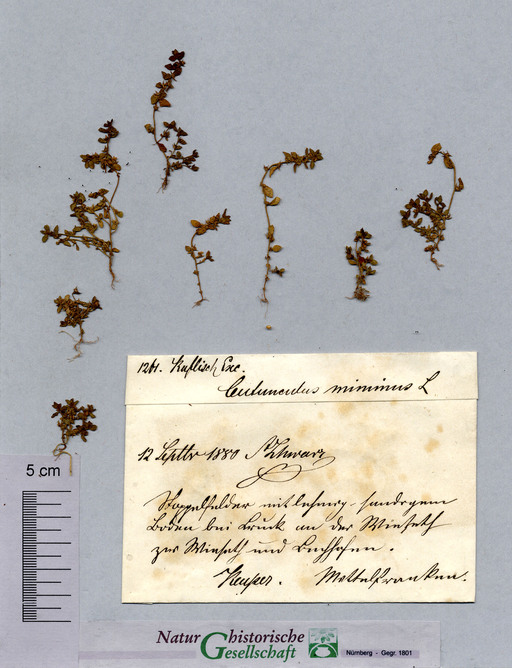 1261. Kaflisch Exc.
Centunculus minimus L
12 Septbr 1880 A Schwarz
Stoppelfelder mit lehmig-sandigem
Boden bei Bruck an der Wieseth
zw Wieseth und Bechhofen.
Keuper. Mittelfranken.
5 cm
Naturhistorische
Gesellschaft
Nürnberg - Gegr. 1801